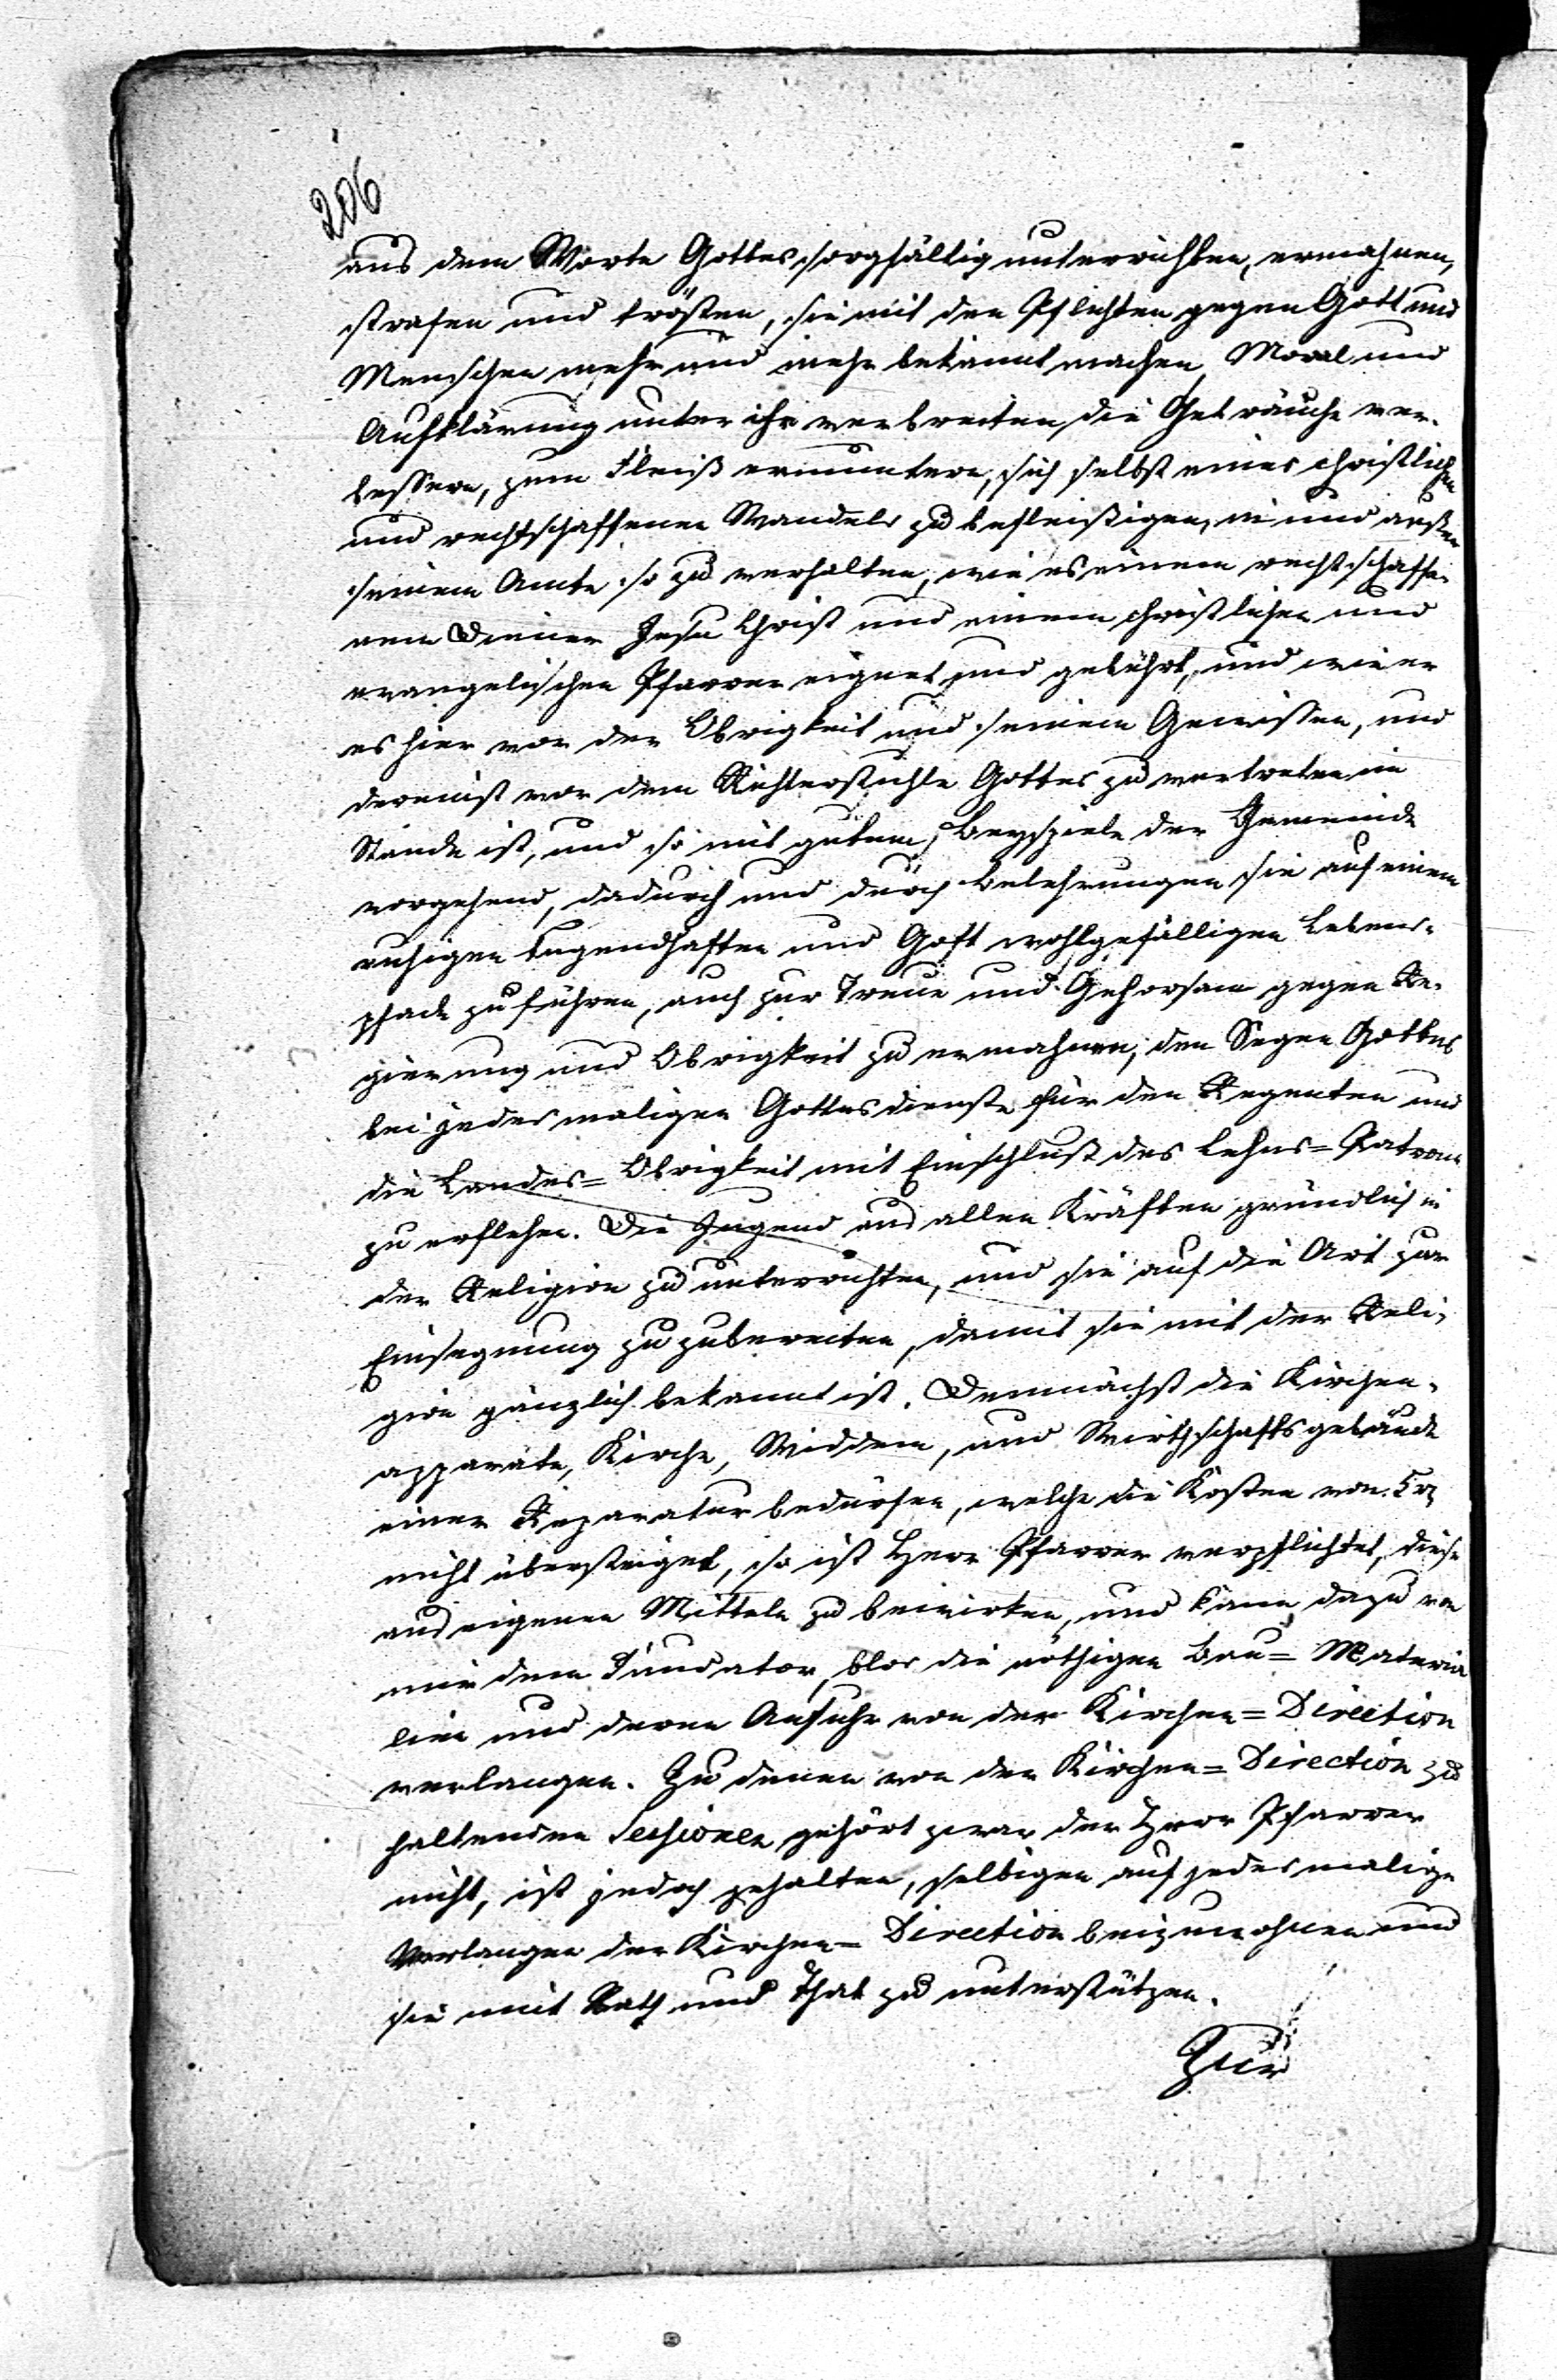 206
aus dem Worte Gottes sorgfältig unterrichten, ermahnen,
strafen und trösten, sie mit den Pflichten gegen Gott und
Menschen mehr und mehr bekannt machen, Moral und
Aufklärung unter ihr verbreiten, die Gebräuche ver-
bessern, zum Fleiß ermuntern, sich selbst eines christlichen
und rechtschaffenen Wandels zu befleißigen, in und außer
seinem Amte so zu verhalten, wie es einem rechtschaffe-
nen Diener Jesu Christ und einem christlichen und
evangelischen Pfarrer eignet und gebührt, und wie er
es hier vor der Obrigkeit und seinem Gewissen, und
dereinst vor dem Richterstuhle Gottes zu vertreten im
Stande ist, und so mit gutem Beyspiele der Gemeinde
vorgehend, dadurch und durch Belehrungen sie auf einem
ruhigen tugendhaften und Gott wohlgefälligen Lebens-
pfade zu führen, auch zur Treue und Gehorsam gegen Re-
gierung und Obrigkeit zu ermahnen, den Segen Gottes
bei jedesmaligen Gottesdienste für den Regenten und
die Landes= Obrigkeit mit Einschluß des Lehns= Patrons
zu erflehen. Die Jugend aus allen Kräften gründlich in
der Religion zu unterrichten, und sie auf die Art zur
Einsegnung zuzubereiten, damit sie mit der Reli-
gion gänzlich bekannt ist. Demnächst die Kirchen-
apparate, Kirche, Widdem, und Wirthschaftsgebäude
einer Reparatur bedürfen, welche die Kosten von
nicht übersteiget, so ist Herr Pfarrer verpflichtet, diese
aus eigenen Mitteln zu bewirken, und kann dazu von
mir dem Fundator, blos die nöthigen Bau= Materia
lien und deren Anfuhr von der Kirchen= Direction
verlangen. Zu denen von der Kirchen= Direction zu
haltenden Sessionen gehört zwar der Herr Pfarrer
nicht, ist jedoch gehalten, selbigen auf jedesmalige
Verlangen der Kirchen= Direction beizuwohnen und
sie mit Rath und That zu unterstützen.
Zur